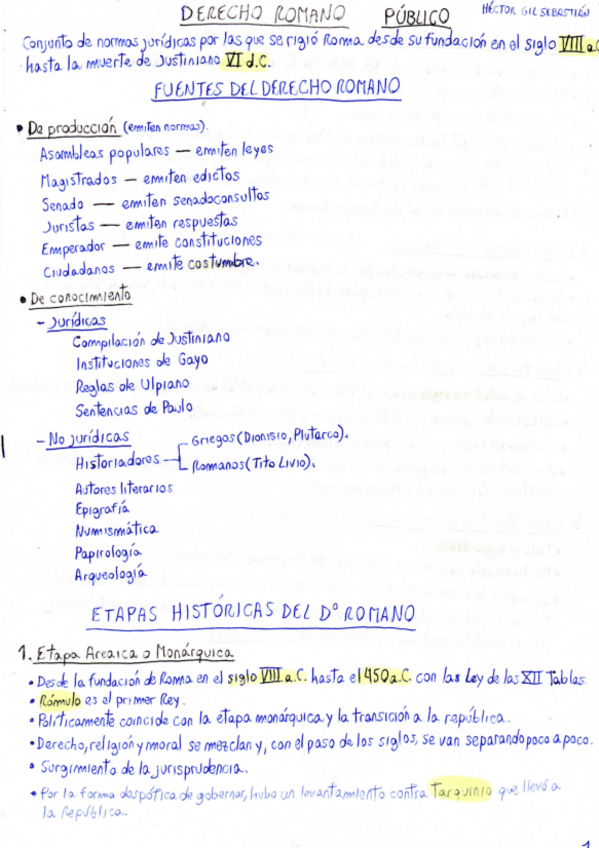 DERECHO ROMANO PÚBLICO HÉCTOR GIL SEBASTIÁN
Conjunto de normas jurídicas por las que se rigió Roma desde su fundación en el siglo VIII a.C
hasta la muerte de Justiniano VI d.C.
FUENTES DEL DERECHO ROMANO
• De producción (emiten normas).
Asambleas populares — emiten leyes
Magistrados — emiten edictos
Senado — emiten senadoconsultos
Juristas — emiten respuestas
Emperador — emite constituciones
Ciudadanos — emite costumbre.
• De conocimiento
- Jurídicas
Compilación de Justiniano
Instituciones de Gayo
Reglas de Ulpiano
Sentencias de Paulo
- No jurídicas
Historiadores
Griegos (Dionisio, Plutarco).
Romanos (Tito Livio).
Autores literarios
Epigrafía
Numismática
Papirología
Arqueología
ETAPAS HISTÓRICAS DEL Dº ROMANO
1. Etapa Arcaica o Monárquica
• Desde la fundación de Roma en el siglo VIII a.C. hasta el 450 a.C. con las Ley de las XII Tablas.
• Rómulo es el primer Rey.
• Políticamente coincide con la etapa monárquica y la transición a la república.
• Derecho, religión y moral se mezclan y, con el paso de los siglos, se van separando poco a poco.
• Surgimiento de la jurisprudencia.
• Por la forma despótica de gobernar, hubo un levantamiento contra Tarquinio que llevó a
la República.
1